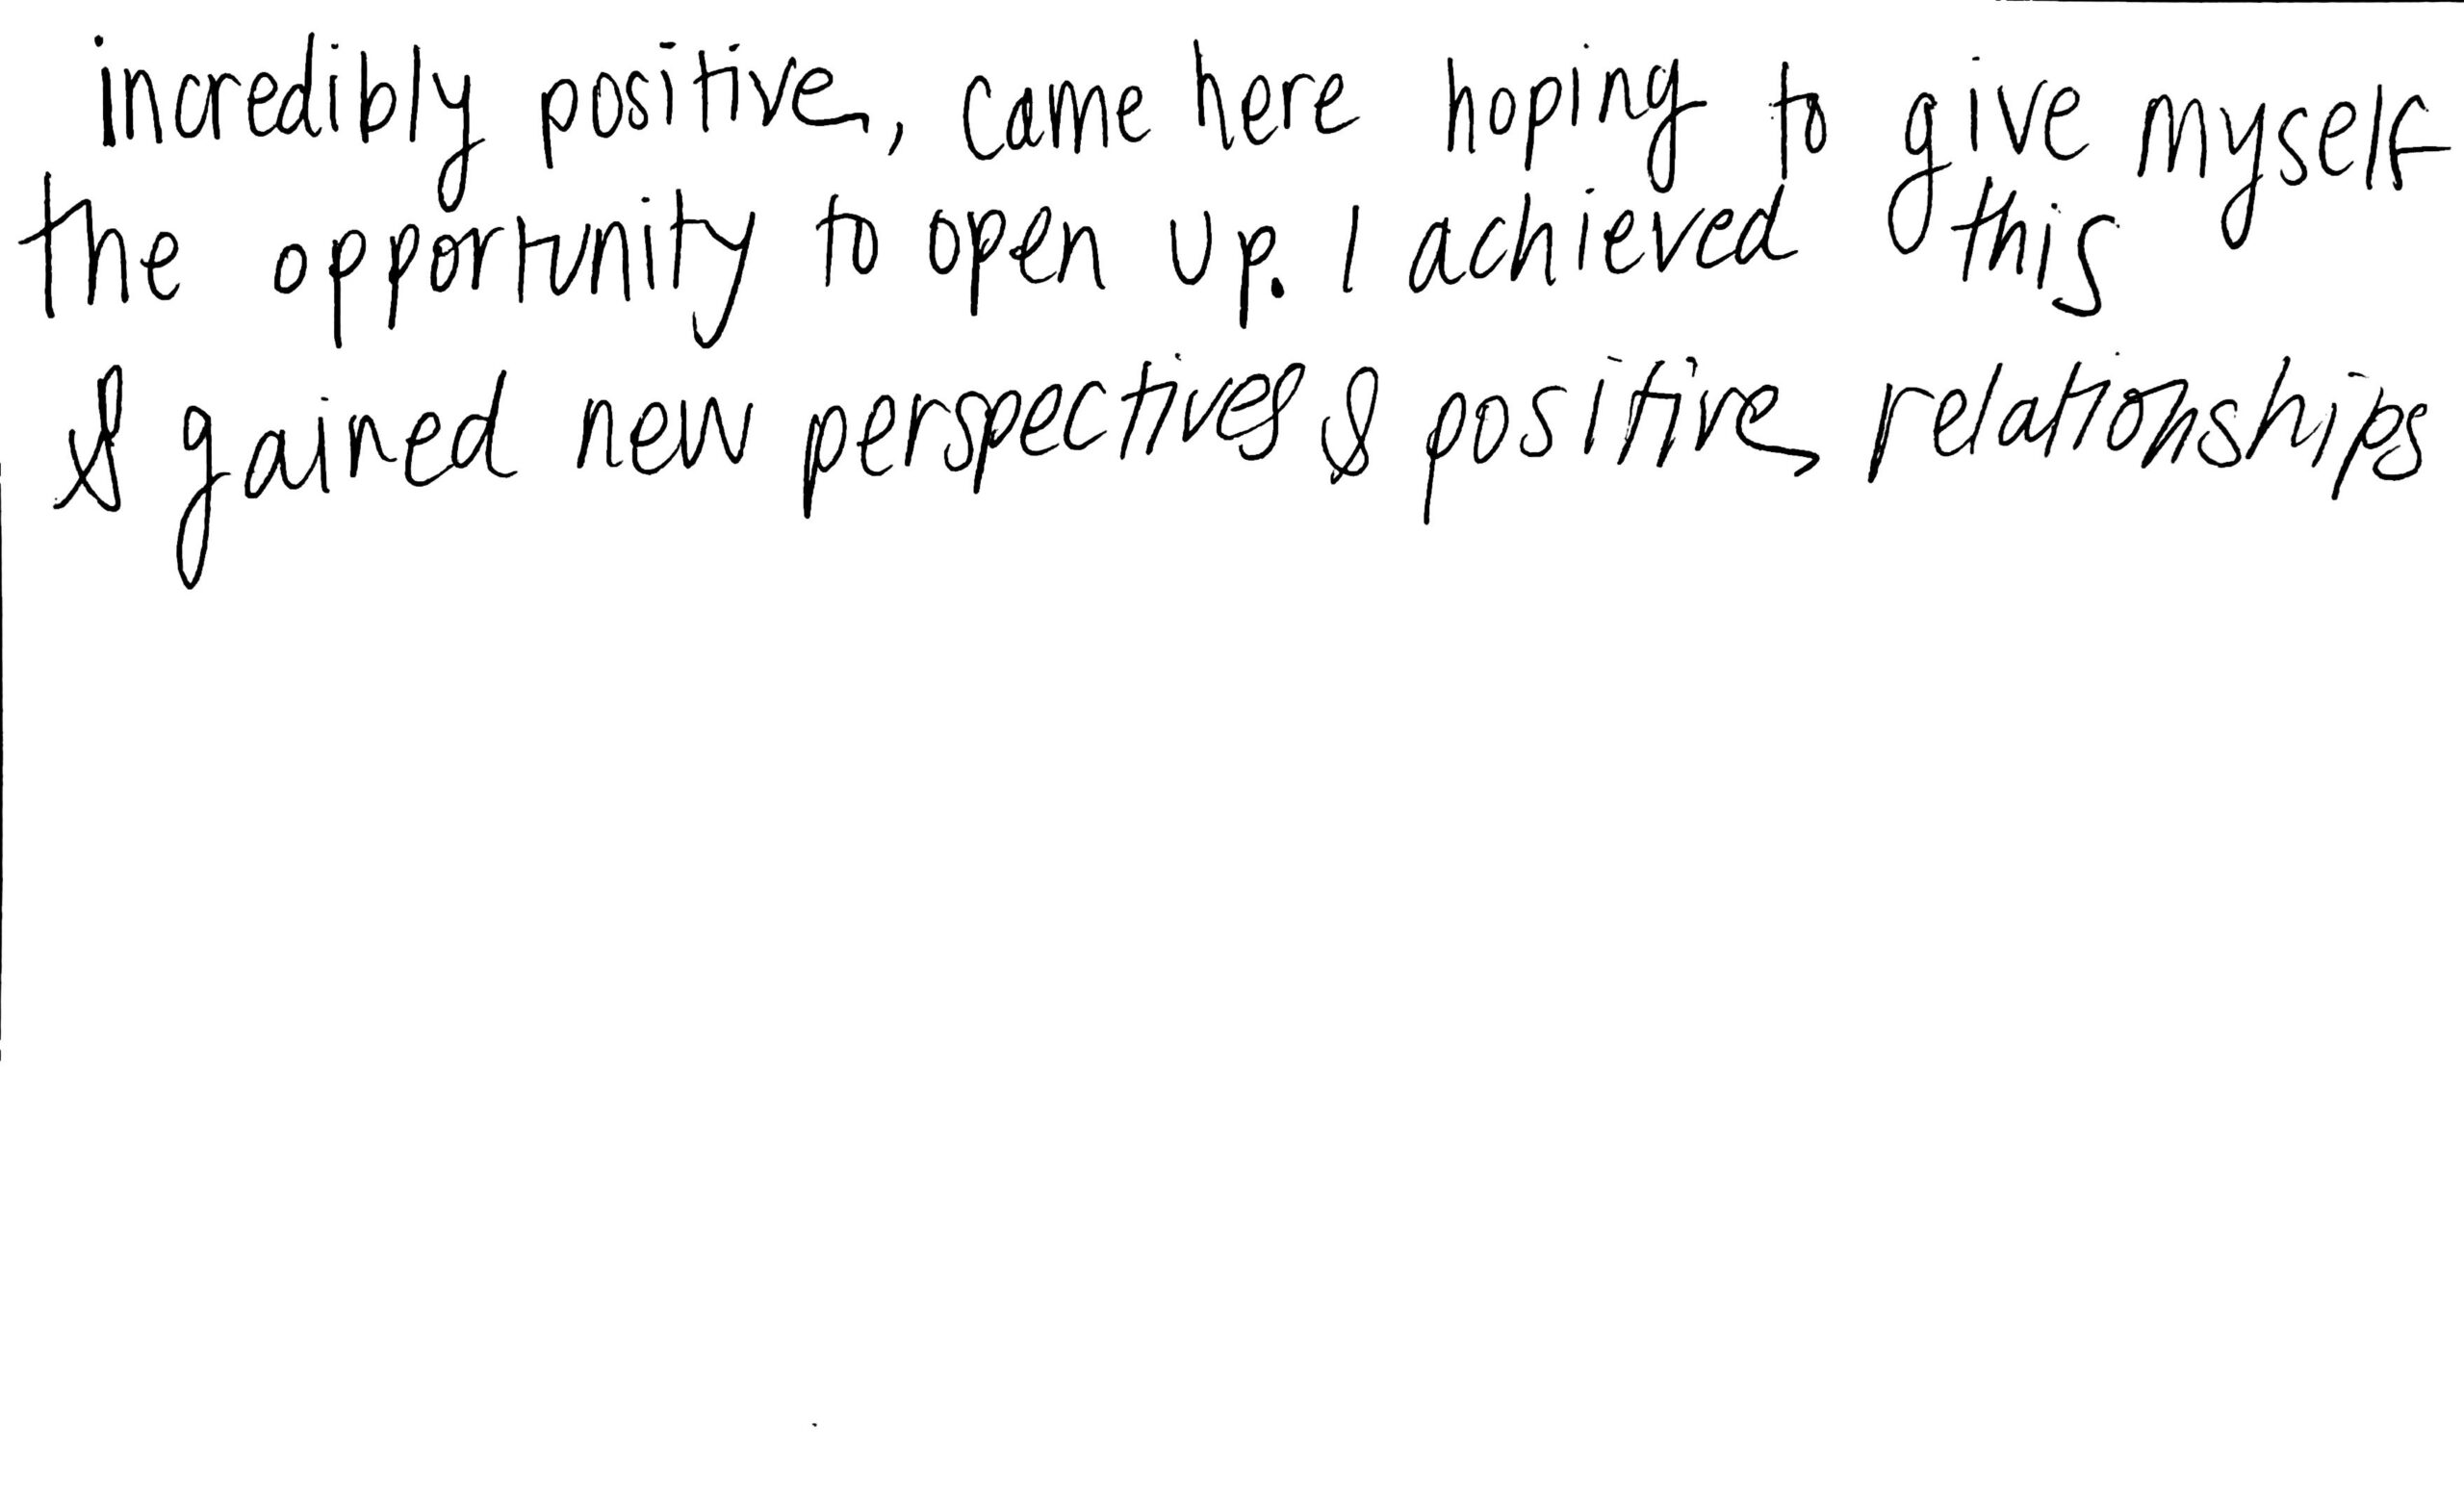 incredibly positive, came here hoping to give myself
the opportunity to open up. I achieved this
& gained new perspectives & positive relationships